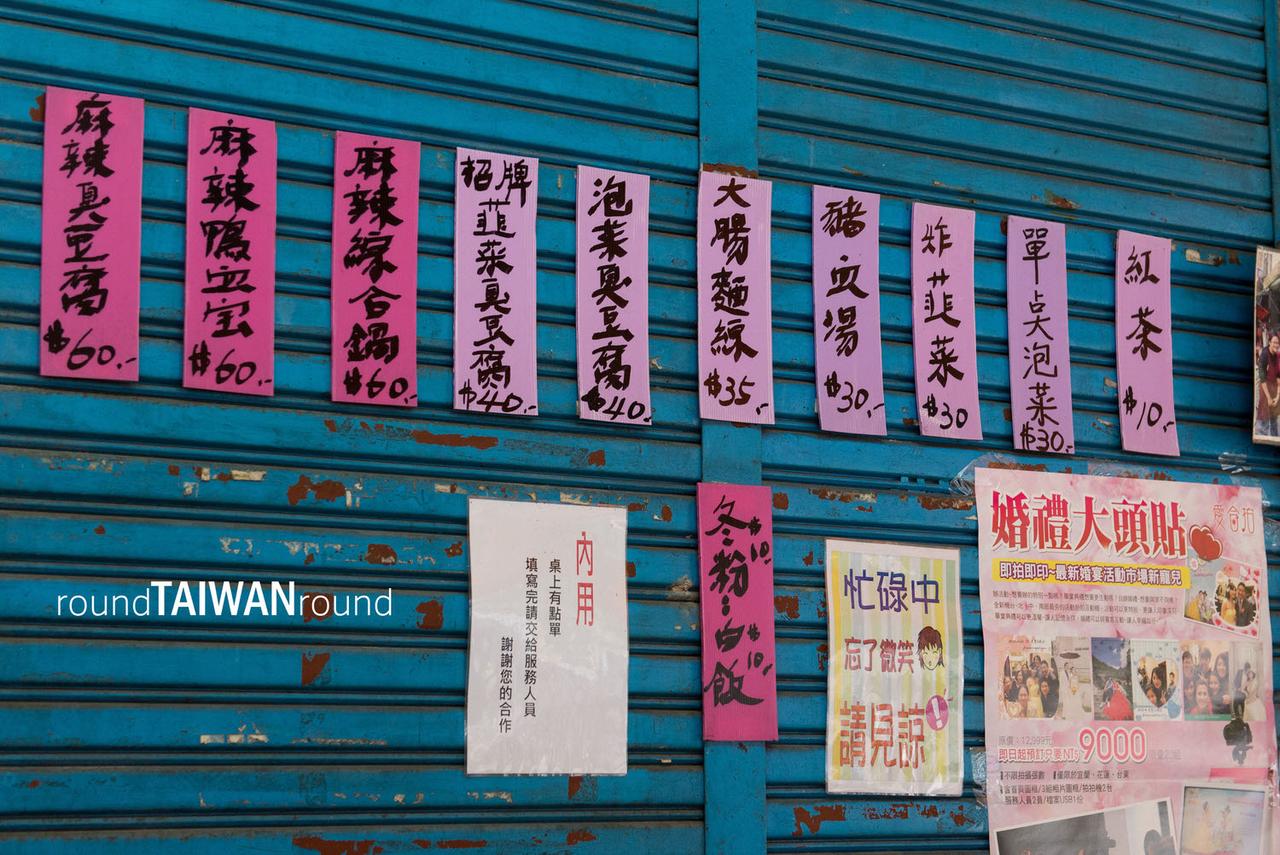 麻辣臭豆腐
$60.-
麻辣鴨血宝
$60.-
麻辣綜合鍋
$60.-
招牌
韮菜臭豆腐
$40.-
泡菜臭豆腐
$40.-
大腸麵線
$35.-
豬血湯
$30.-
炸韮菜
$30
單点泡菜
$30.-
紅茶
$10.-
內用
桌上有點單
填寫完請交給服務人員
謝謝您的合作
冬粉 $10.
白飯 $10.-
忙碌中
忘了微笑
請見諒!
婚禮大頭貼
愛合拍
即拍即印~最新婚宴活動市場新寵兒
原價:12,999元
即日起預訂只要NT$9000
不限拍攝張數 僅限於宜蘭、花蓮、台東
服務人員2員/檔案USB1份
roundTAIWANround